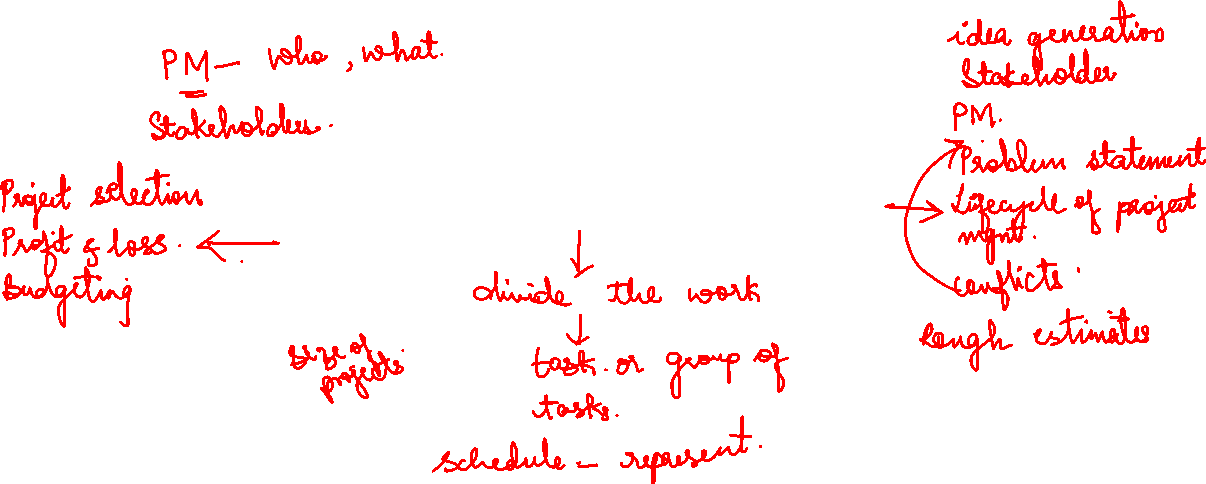 PM - who, what.
Stakeholders.
Project selection
Profit & loss.
Budgeting
divide the work
size of
projects
task or group of
tasks.
schedule - represent.
idea generation
Stakeholder
PM.
Problem statement
Lifecycle of project
mgnt.
conflicts.
Rough estimates